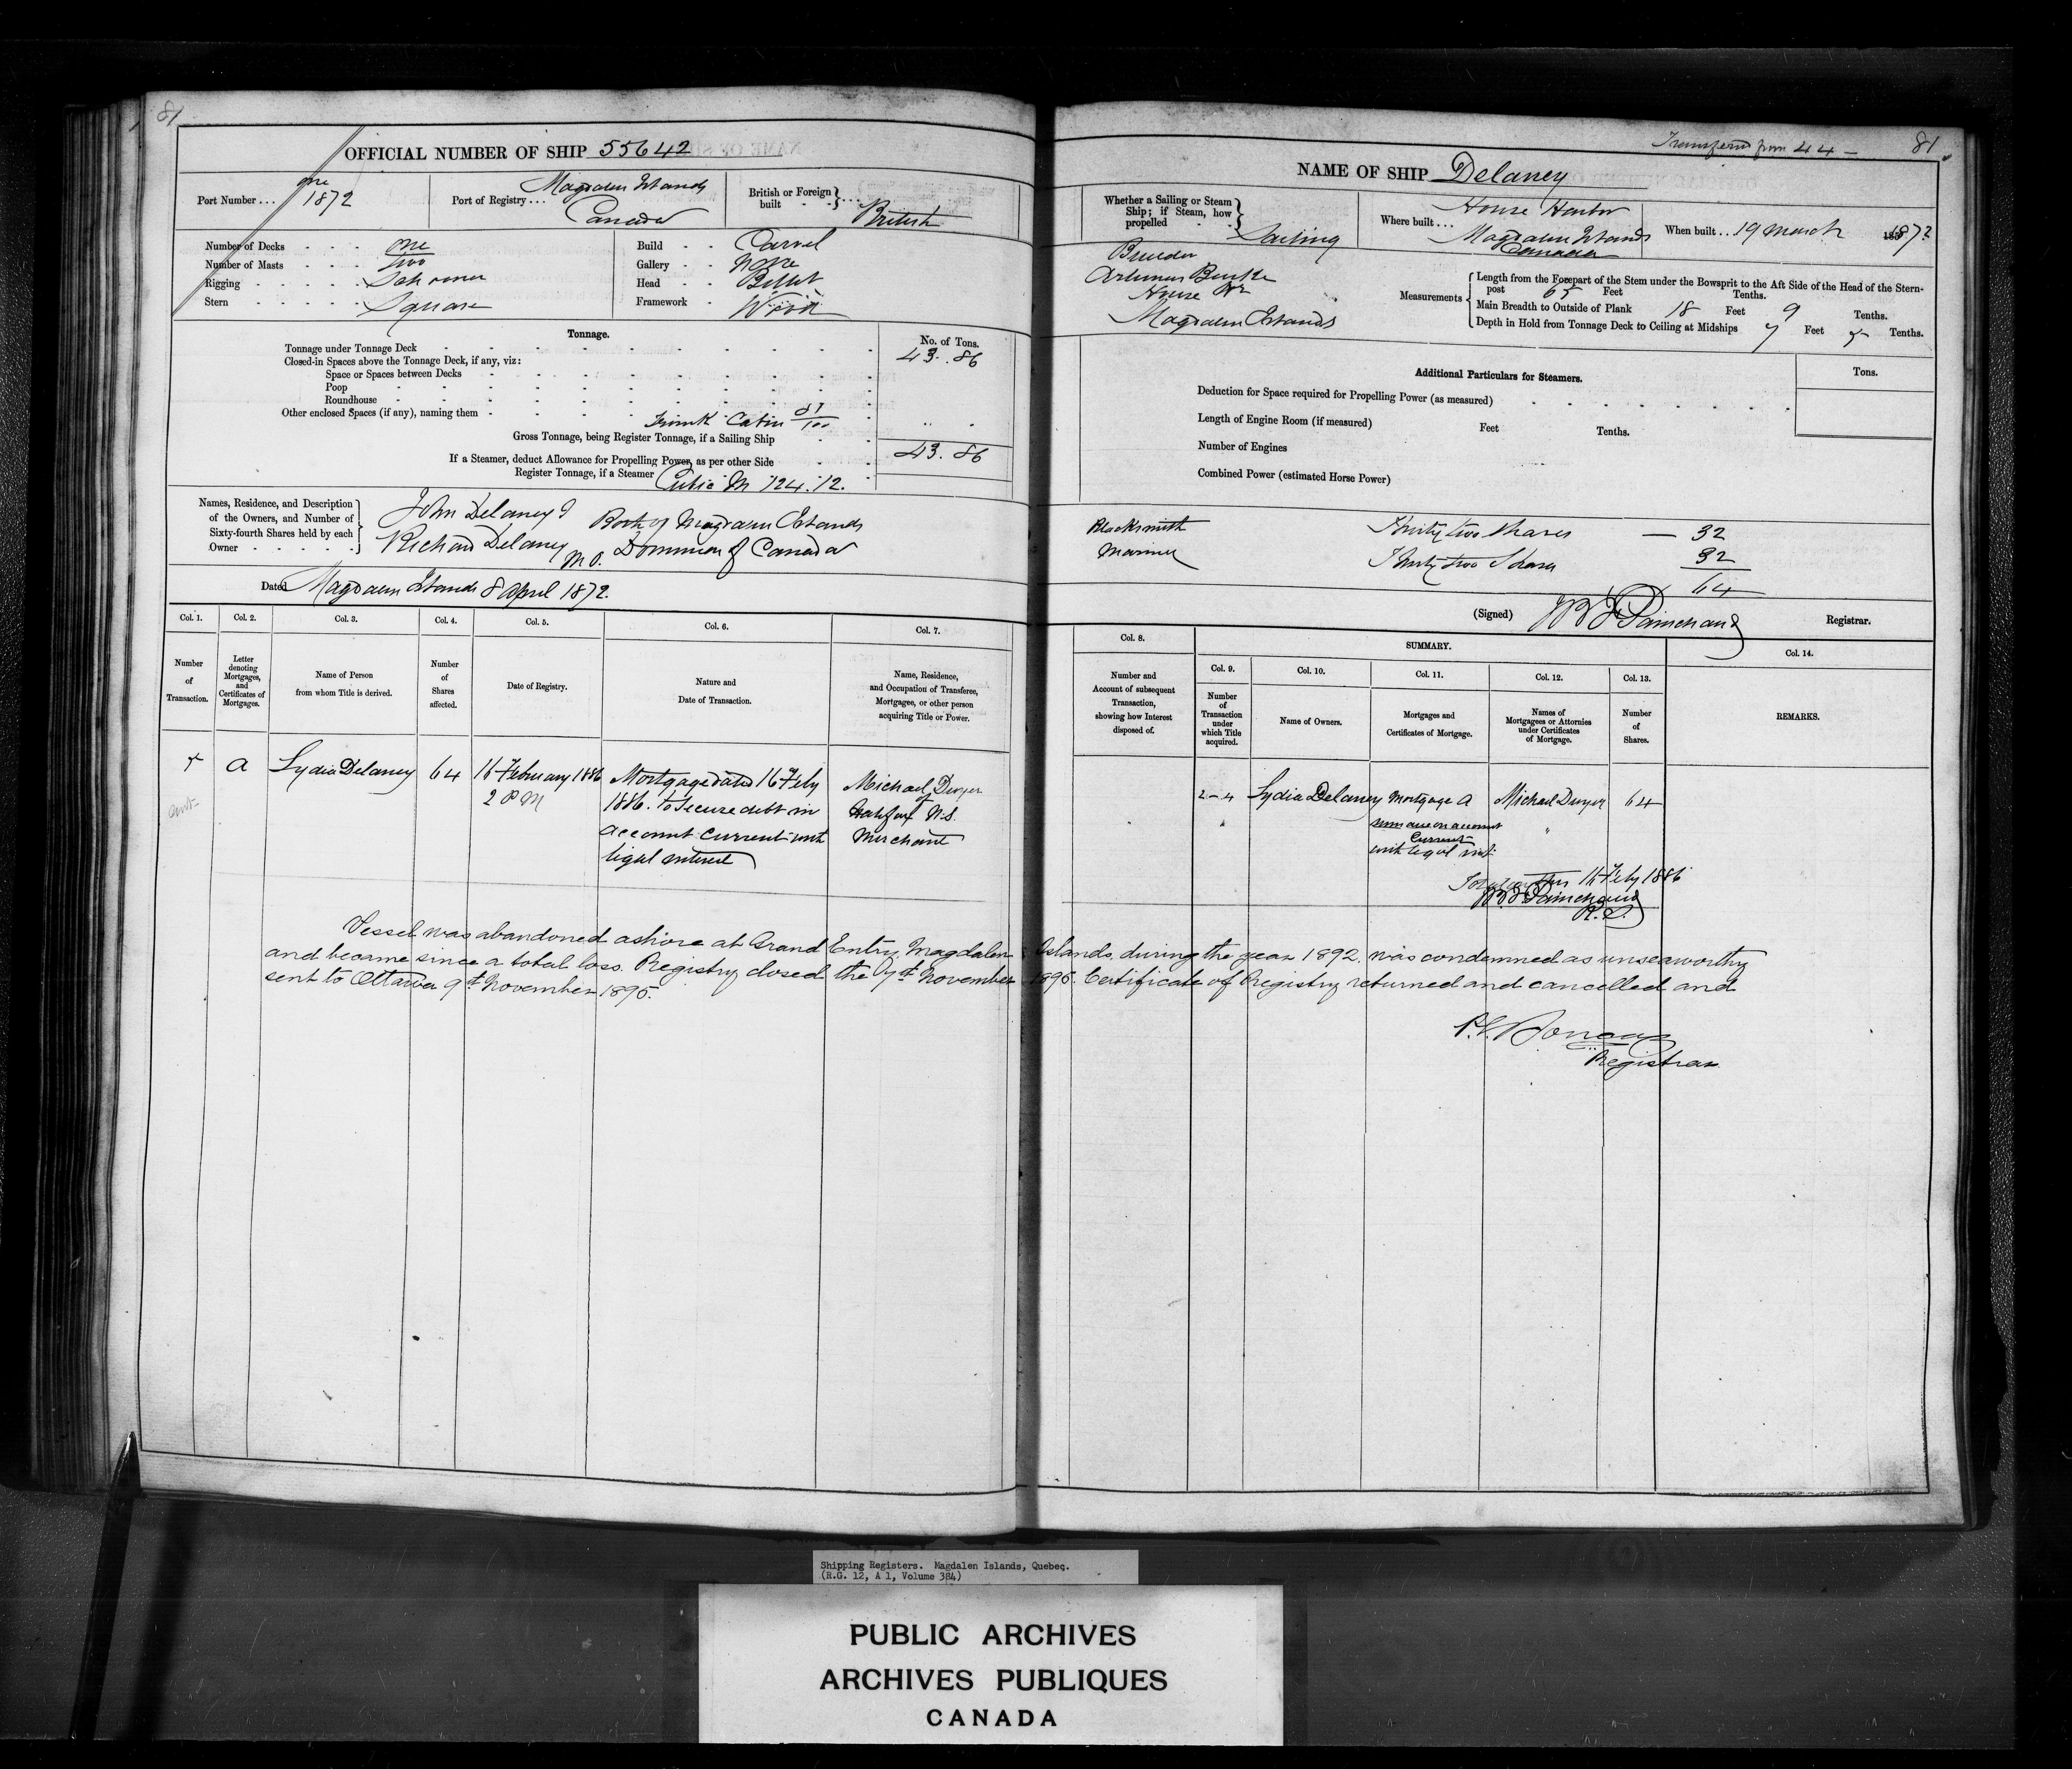 81
OFFICIAL NUMBER OF SHIP 55642
Port Number . . . one 1872
Port of Registry . . . Magdalen Islands Canada
British or Foreign built British
Number of Decks one
Number of Masts two
Rigging Schooner
Stern Square
Build Carvel
Gallery None
Head Billet
Framework Wood
Tonnage.
No. of Tons.
Tonnage under Tonnage Deck 43.86
Closed-in Spaces above the Tonnage Deck, if any, viz:
Space or Spaces between Decks
Poop
Roundhouse
Other enclosed Spaces (if any), naming them Trunk Cabin
Gross Tonnage, being Register Tonnage, if a Sailing Ship 43.86
If a Steamer, deduct Allowance for Propelling Power, as per other Side
Register Tonnage, if a Steamer
Cubic M 124.12.
Names, Residence, and Description of the Owners, and Number of Sixty-fourth Shares held by each Owner
John Delaney & Both of Magdalen Islands
Richard Delaney M O. Dominion of Canada
Dated Magdalen Islands 8 April 1872.
Col. 1. Col. 2. Col. 3. Col. 4. Col. 5. Col. 6. Col. 7.
Number of Transaction.
Letter denoting Mortgages, and Certificates of Mortgages.
Name of Person from whom Title is derived.
Number of Shares affected.
Date of Registry.
Nature and Date of Transaction.
Name, Residence, and Occupation of Transferee, Mortgagee, or other person acquiring Title or Power.
A
Lydia Delaney
64
16 February 1886
2 P M
Mortgage dated 16 Feby
1886. to secure debt in
account current with
legal interest
Michael Dwyer
of
Halifax N.S.
Merchant
Transferred from 44 —
81
NAME OF SHIP Delaney
Whether a Sailing or Steam Ship; if Steam, how propelled Sailing
Where built . . . House Harbor
Magdalen Islands
Canada
When built . . 19 March 1872
Builder
Artimus Burke
House Hr
Magdalen Islands
Measurements
Length from the Forepart of the Stem under the Bowsprit to the Aft Side of the Head of the Stern-post 65 Feet Tenths.
Main Breadth to Outside of Plank 18 Feet 9 Tenths.
Depth in Hold from Tonnage Deck to Ceiling at Midships 7 Feet 5 Tenths.
Additional Particulars for Steamers.
Tons.
Deduction for Space required for Propelling Power (as measured)
Length of Engine Room (if measured) Feet Tenths.
Number of Engines
Combined Power (estimated Horse Power)
Blacksmith Thirty two shares — 32
Mariner Thirty two Shares 32
64
(Signed) J B F Painchaud Registrar.
Col. 8.
SUMMARY.
Col. 9. Col. 10. Col. 11. Col. 12. Col. 13.
Col. 14.
Number and Account of subsequent Transaction, showing how Interest disposed of.
Number of Transaction under which Title acquired.
Name of Owners.
Mortgages and Certificates of Mortgage.
Names of Mortgagees or Attornies under Certificates of Mortgage.
Number of Shares.
REMARKS.
2-4
Lydia Delaney
Mortgage A
sum due on account
current
with legal int
Michael Dwyer
64
16 Feby 1886
J B F Painchaud
R. S.
Vessel was abandoned ashore at Grand Entry, Magdalen Islands, during the year 1892, was condemned as unseaworthy
and became since a total loss. Registry closed the 9th November 1895. Certificate of Registry returned and cancelled and
sent to Ottawa 9th November 1895.
Registrar
Shipping Registers. Magdalen Islands, Quebec.
(R.G. 12, A 1, Volume 384)
PUBLIC ARCHIVES
ARCHIVES PUBLIQUES
CANADA